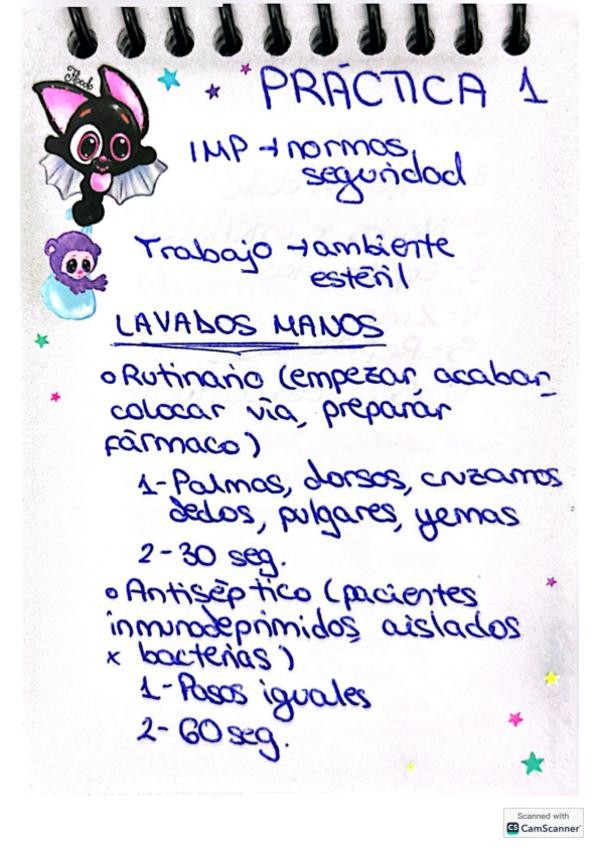 PRÁCTICA 1
IMP → normas
seguridad
Trabajo → ambiente
estéril
LAVADOS MANOS
o Rutinario (empezar, acabar,
colocar vía, preparar
fármaco)
1- Palmas, dorsos, cruzamos
dedos, pulgares, yemas
2- 30 seg.
o Antiséptico (pacientes
inmunodeprimidos, aislados
x bacterias)
1- Pasos iguales
2- 60 seg.
Scanned with
CS CamScanner